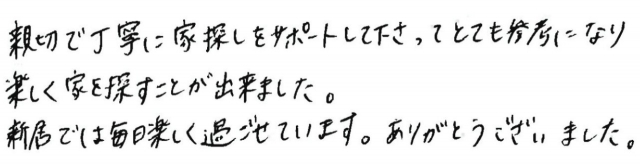 親切で丁寧に家探しをサポートして下さってとても参考になり
楽しく家を探すことが出来ました。
新居では毎日楽しく過ごせています。ありがとうございました。